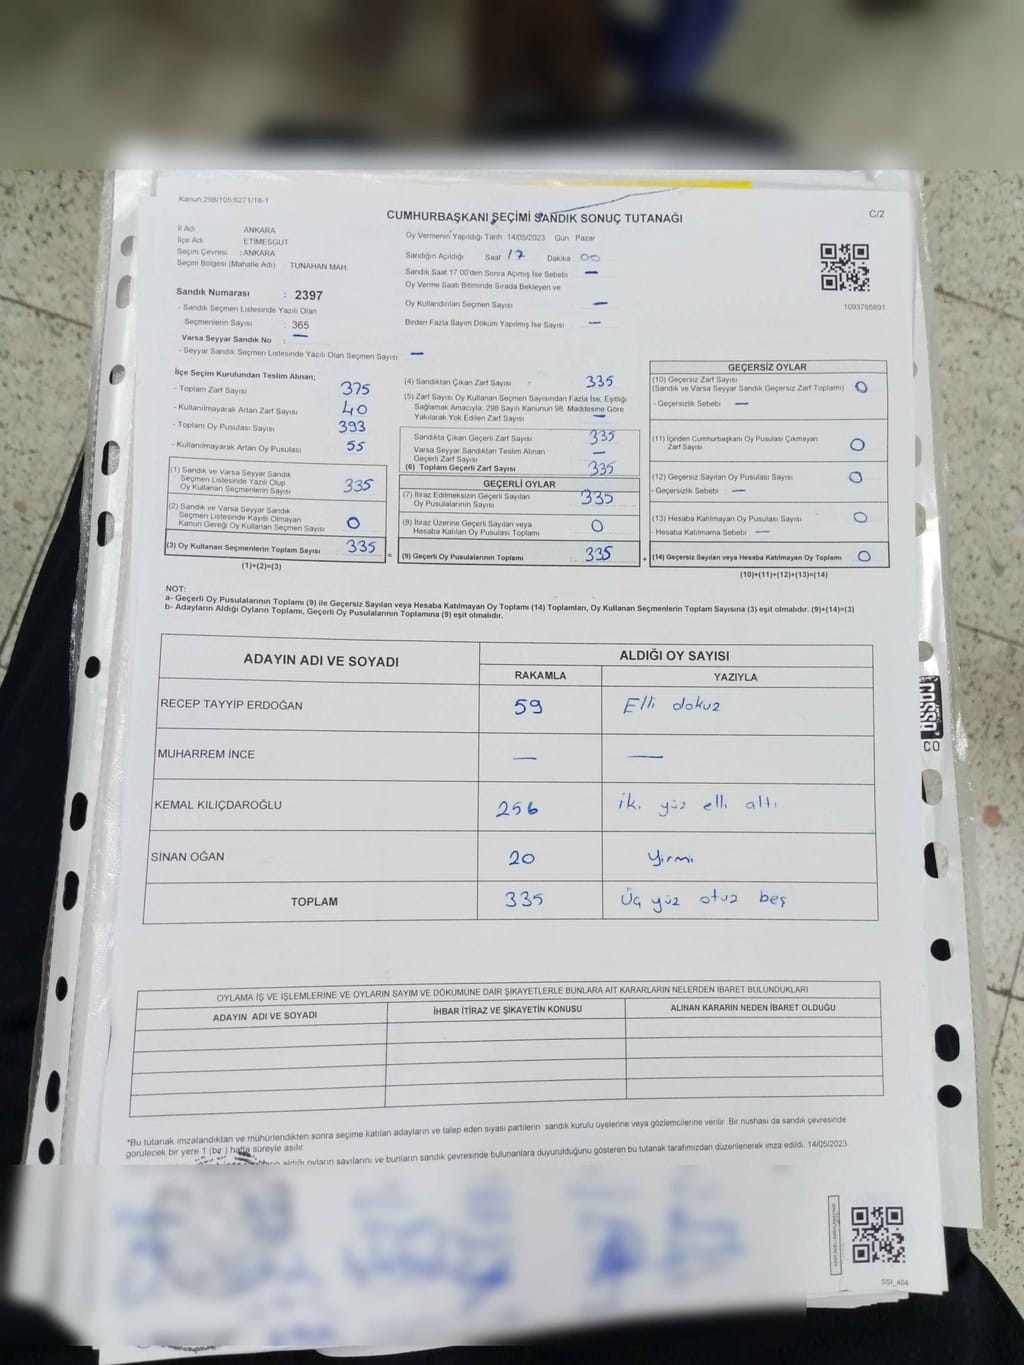 Kanun:298/105;6271/18-1
CUMHURBAŞKANI SEÇİMİ SANDIK SONUÇ TUTANAĞI
C/2
İl Adı ANKARA
İlçe Adı ETİMESGUT
Seçim Çevresi : ANKARA
Seçim Bölgesi (Mahalle Adı) TUNAHAN MAH
Sandık Numarası : 2397
- Sandık Seçmen Listesinde Yazılı Olan
Seçmenlerin Sayısı : 365
Varsa Seyyar Sandık No : —
- Seyyar Sandık Seçmen Listesinde Yazılı Olan Seçmen Sayısı —
Oy Vermenin Yapıldığı Tarih 14/05/2023 Gün Pazar
Sandığın Açıldığı Saat 17 Dakika 00
Sandık Saat 17:00'den Sonra Açılmış İse Sebebi —
Oy Verme Saati Bitiminde Sırada Bekleyen ve
Oy Kullandırılan Seçmen Sayısı —
Birden Fazla Sayım Döküm Yapılmış İse Sayısı —
1093795891
İlçe Seçim Kurulundan Teslim Alınan;
- Toplam Zarf Sayısı 375
- Kullanılmayarak Artan Zarf Sayısı 40
- Toplam Oy Pusulası Sayısı 393
- Kullanılmayarak Artan Oy Pusulası 55
(1) Sandık ve Varsa Seyyar Sandık
Seçmen Listesinde Yazılı Olup
Oy Kullanan Seçmenlerin Sayısı 335
(2) Sandık ve Varsa Seyyar Sandık
Seçmen Listesinde Kayıtlı Olmayan
Kanun Gereği Oy Kullanan Seçmen Sayısı 0
(3) Oy Kullanan Seçmenlerin Toplam Sayısı 335
(1)+(2)=(3)
=
(4) Sandıktan Çıkan Zarf Sayısı : 335
(5) Zarf Sayısı Oy Kullanan Seçmen Sayısından Fazla İse, Eşitliği
Sağlamak Amacıyla, 298 Sayılı Kanunun 98. Maddesine Göre
Yakılarak Yok Edilen Zarf Sayısı —
Sandıkta Çıkan Geçerli Zarf Sayısı 335
Varsa Seyyar Sandıktan Teslim Alınan
Geçerli Zarf Sayısı —
(6) Toplam Geçerli Zarf Sayısı 335
GEÇERLİ OYLAR
(7) İtiraz Edilmeksizin Geçerli Sayılan
Oy Pusulalarının Sayısı 335
(8) İtiraz Üzerine Geçerli Sayılan veya
Hesaba Katılan Oy Pusulası Toplamı 0
(9) Geçerli Oy Pusulalarının Toplamı : 335
+
GEÇERSİZ OYLAR
(10) Geçersiz Zarf Sayısı
(Sandık ve Varsa Seyyar Sandık Geçersiz Zarf Toplamı) 0
- Geçersizlik Sebebi —
(11) İçinden Cumhurbaşkanı Oy Pusulası Çıkmayan
Zarf Sayısı 0
(12) Geçersiz Sayılan Oy Pusulası Sayısı 0
- Geçersizlik Sebebi : —
(13) Hesaba Katılmayan Oy Pusulası Sayısı 0
- Hesaba Katılmama Sebebi —
(14) Geçersiz Sayılan veya Hesaba Katılmayan Oy Toplamı 0
(10)+(11)+(12)+(13)=(14)
NOT:
a- Geçerli Oy Pusulalarının Toplamı (9) ile Geçersiz Sayılan veya Hesaba Katılmayan Oy Toplamı (14) Toplamları, Oy Kullanan Seçmenlerin Toplam Sayısına (3) eşit olmalıdır. (9)+(14)=(3)
b- Adayların Aldığı Oyların Toplamı, Geçerli Oy Pusulalarının Toplamına (9) eşit olmalıdır.
ADAYIN ADI VE SOYADI
ALDIĞI OY SAYISI
RAKAMLA YAZIYLA
RECEP TAYYİP ERDOĞAN 59 Elli dokuz
MUHARREM İNCE — —
KEMAL KILIÇDAROĞLU 256 iki yüz elli altı
SİNAN OĞAN 20 Yirmi
TOPLAM 335 Üç yüz otuz beş
OYLAMA İŞ VE İŞLEMLERİNE VE OYLARIN SAYIM VE DÖKÜMÜNE DAİR ŞİKAYETLERLE BUNLARA AİT KARARLARIN NELERDEN İBARET BULUNDUKLARI
ADAYIN ADI VE SOYADI İHBAR İTİRAZ VE ŞİKAYETİN KONUSU ALINAN KARARIN NEDEN İBARET OLDUĞU
*Bu tutanak imzalandıktan ve mühürlendikten sonra seçime katılan adayların ve talep eden siyasi partilerin sandık kurulu üyelerine veya gözlemcilerine verilir. Bir nüshası da sandık çevresinde
görülecek bir yere 1 (bir) hafta süreyle asılır.
aldığı oyların sayılarını ve bunların sandık çevresinde bulunanlara duyurulduğunu gösteren bu tutanak tarafımızdan düzenlenerek imza edildi. 14/05/2023
SSI_404